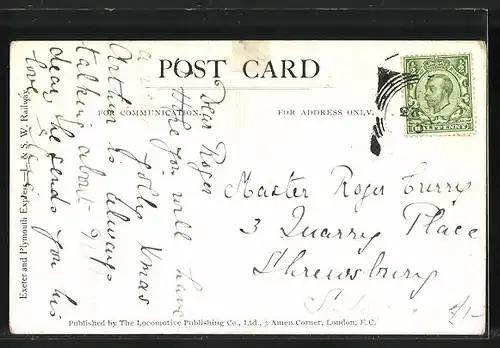 POST CARD
FOR COMMUNICATION.
FOR ADDRESS ONLY.
Dear Roger
I Hope you will have
a v. jolly Xmas
Arthur is always
talking about you
dear, he sends you his
love.
HALFPENNY
Master Roger Curry
3 Quarry Place
Shrewsbury
1/-
Exeter and Plymouth Express—L. & S. W. Railway.
Published by The Locomotive Publishing Co., Ltd., 3 Amen Corner, London, E.C.